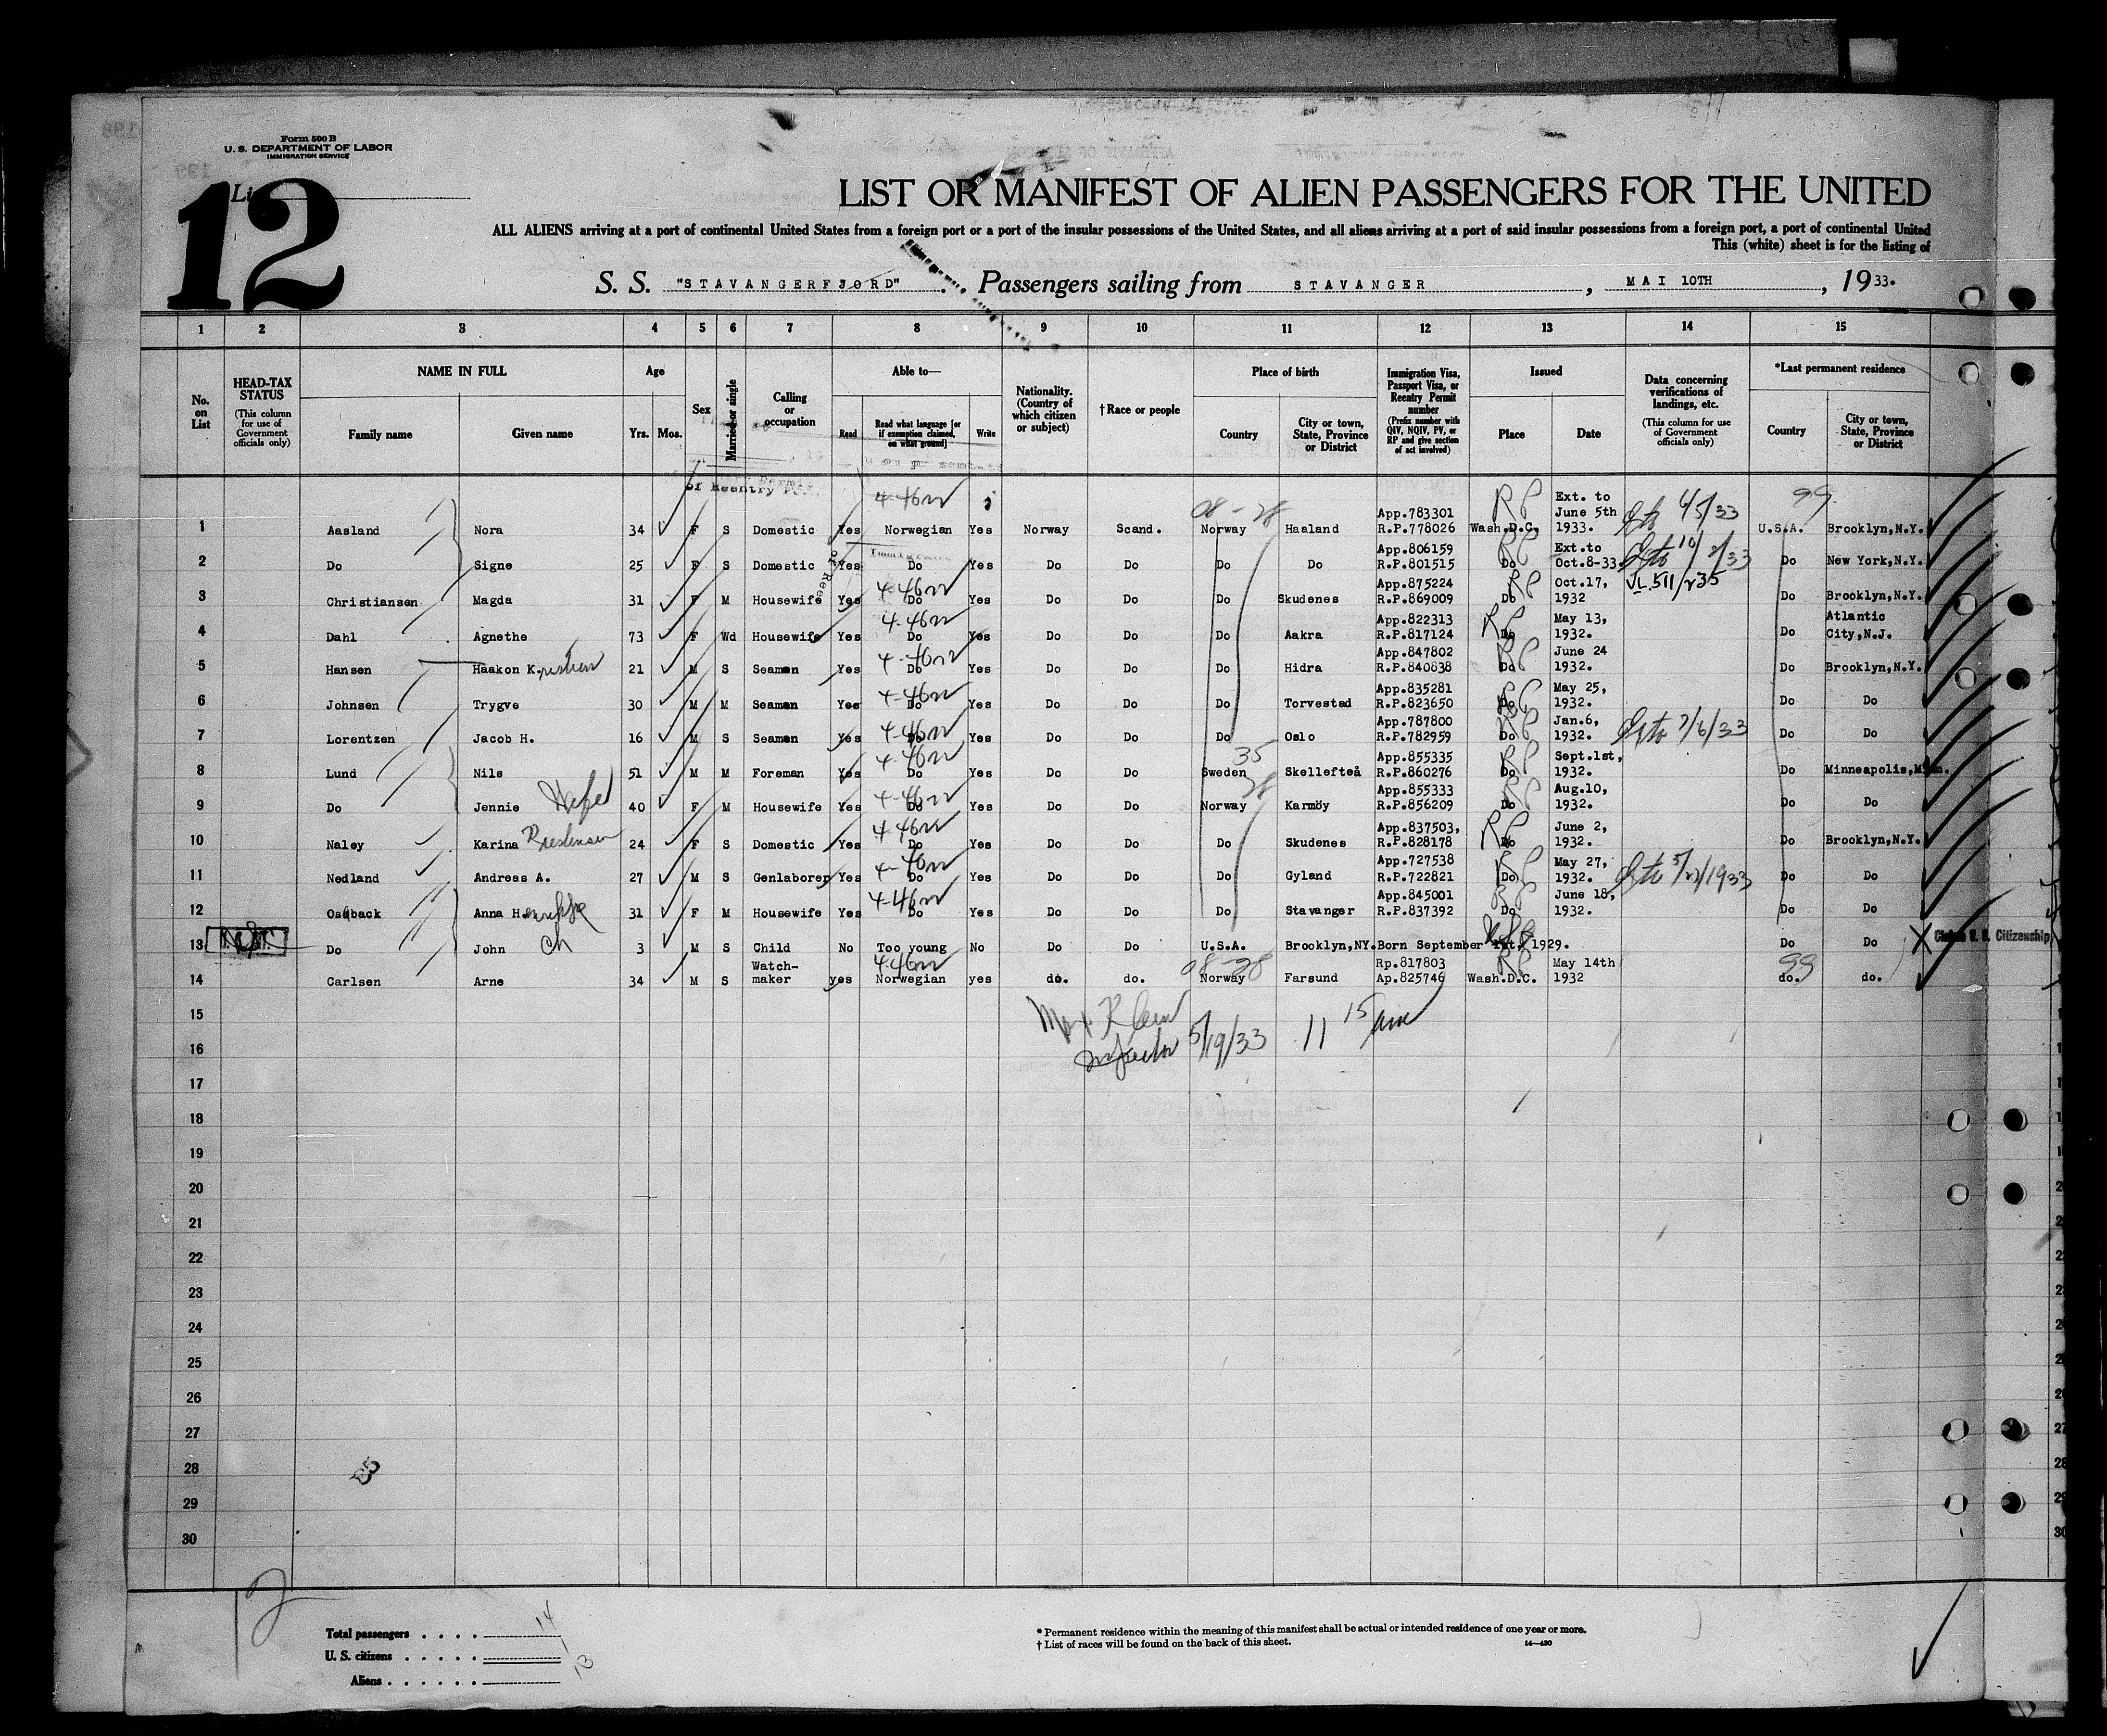 Form 500 B
U. S. DEPARTMENT OF LABOR
IMMIGRATION SERVICE
12
LIST OR MANIFEST OF ALIEN PASSENGERS FOR THE UNITED
ALL ALIENS arriving at a port of continental United States from a foreign port or a port of the insular possessions of the United States, and all aliens arriving at a port of said insular possessions from a foreign port, a port of continental United
This (white) sheet is for the listing of
S. S. "STAVANGERFJORD" Passengers sailing from STAVANGER, MAI 10TH, 1933.
1 2 3 4 5 6 7 8 9 10 11 12 13 14 15
No. on List
HEAD-TAX STATUS (This column for use of Government officials only)
NAME IN FULL Family name Given name
Age Yrs. Mos.
Sex
Married or single
Calling or occupation
Able to— Read Read what language [or if exemption claimed, on what ground] Write
Nationality. (Country of which citizen or subject)
† Race or people
Place of birth Country City or town, State, Province or District
Immigration Visa, Passport Visa, or Reentry Permit number (Prefix number with QIV, NQIV, PV, or RP and give section of act involved)
Issued Place Date
Data concerning verifications of landings, etc. (This column for use of Government officials only)
*Last permanent residence Country City or town, State, Province or District
of Reentry
1 Aasland Nora 34 F S Domestic Yes 4-46 Norwegian Yes Norway Scand. 08-28 Norway Haaland App.783301 R.P.778026 RP Wash.D.C. Ext. to June 5th 1933. 99 U.S.A. Brooklyn,N.Y.
2 Do Signe 25 F S Domestic Yes Do Yes Do Do Do Do App.806159 R.P.801515 RP Do Ext.to Oct.8-33 Do New York,N.Y.
3 Christiansen Magda 31 F M Housewife Yes 4-46 Do Yes Do Do Do Skudenes App.875224 R.P.869009 RP Do Oct.17, 1932 VL.511/235 Do Brooklyn,N.Y.
4 Dahl Agnethe 73 F Wd Housewife Yes 4-46 Do Yes Do Do Do Aakra App.822313 R.P.817124 RP Do May 13, 1932. Do Atlantic City,N.J.
5 Hansen Haakon Kristian 21 M S Seaman Yes Do Yes Do Do Do Hidra App.847802 R.P.840838 RP Do June 24 1932. Do Brooklyn,N.Y.
6 Johnsen Trygve 30 M M Seaman Yes 4-46 Do Yes Do Do Do Torvestad App.835281 R.P.823650 RP Do May 25, 1932. Do Do
7 Lorentzen Jacob H. 16 M S Seaman Yes 4-46 Do Yes Do Do Do Oslo App.787800 R.P.782959 RP Do Jan.6, 1932. 7/6/33 Do Do
8 Lund Nils 51 M M Foreman Yes 4-46 Do Yes Do Do 35 Sweden Skellefteå App.855335 R.P.860276 RP Do Sept.1st, 1932. Do Minneapolis,
9 Do Jennie 40 F M Housewife Yes 4-46 Do Yes Do Do 28 Norway Karmöy App.855333 R.P.856209 RP Do Aug.10, 1932. Do Do
10 Naley Karina 24 F S Domestic Yes 4-46 Do Yes Do Do Do Skudenes App.837503, R.P.828178 RP Do June 2, 1932. Do Brooklyn,N.Y.
11 Nedland Andreas A. 27 M S Genlaborer Yes Do Yes Do Do Do Gyland App.727538 R.P.722821 RP Do May 27, 1932. Do Do
12 Osaback Anna H 31 F M Housewife Yes 4-46 Do Yes Do Do Do Stavanger App.845001 R.P.837392 Do June 18, 1932. Do Do
13 Do John Ch 3 M S Child No Too young No Do Do U.S.A. Brooklyn,NY. Born September 1st, 1929. Do Do X U. S. Citizenship
14 Carlsen Arne 34 M S Watch-maker yes 4-46 Norwegian yes do. do. 08-28 Norway Farsund Rp.817803 Ap.825746 RP Wash.D.C. May 14th 1932 99 do. do.
15 Max Klein 11 15 am
16 Inspector 5/19/33
17
18
19
20
21
22
23
24
25
26
27
28
29
30
2
Total passengers 14
U. S. citizens 1
Aliens 13
* Permanent residence within the meaning of this manifest shall be actual or intended residence of one year or more.
† List of races will be found on the back of this sheet.
14—430